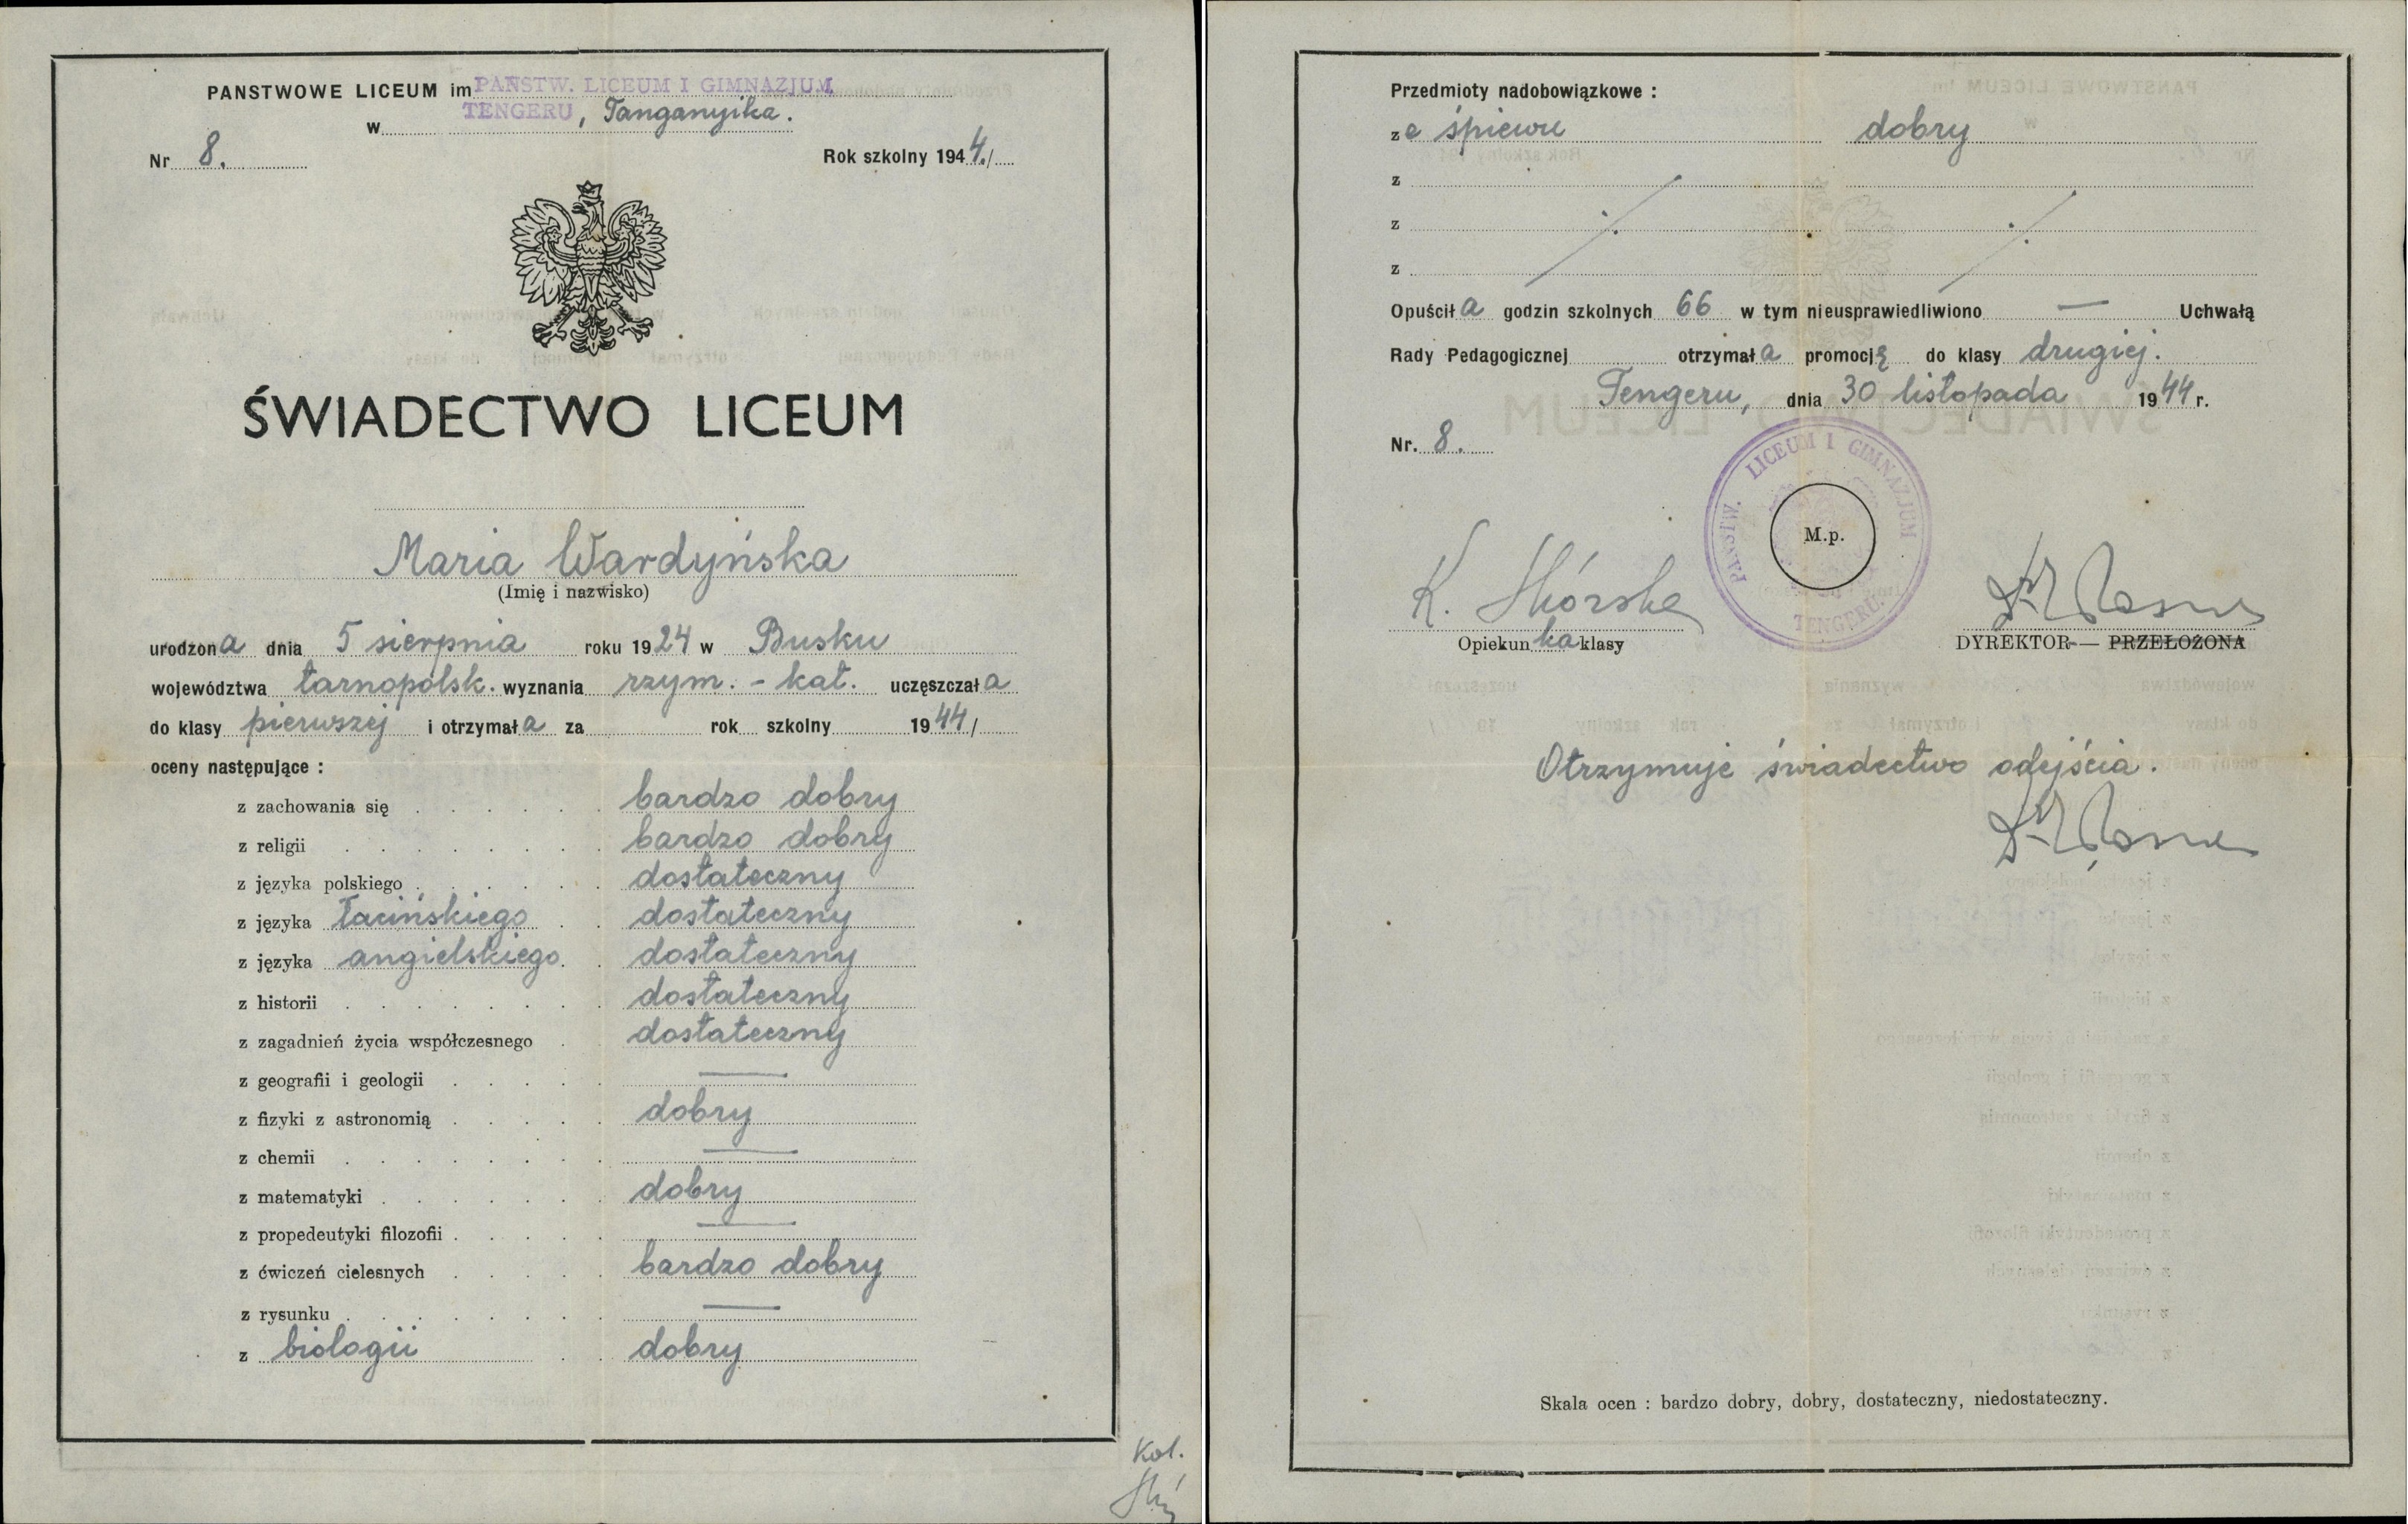 PANSTWOWE LICEUM im PAŃSTW. LICEUM I GIMNAZJUM
w TENGERU, Tanganyika.
Nr 8. Rok szkolny 1944./
ŚWIADECTWO LICEUM
Maria Wardyńska
(Imię i nazwisko)
urodzona dnia 5 sierpnia roku 1924 w Busku
województwa tarnopolsk. wyznania rzym.-kat. uczęszczała
do klasy pierwszej i otrzymała za rok szkolny 1944/
oceny następujące :
z zachowania się bardzo dobry
z religii bardzo dobry
z języka polskiego dostateczny
z języka łacińskiego dostateczny
z języka angielskiego dostateczny
z historii dostateczny
z zagadnień życia współczesnego dostateczny
z geografii i geologii —
z fizyki z astronomią dobry
z chemii —
z matematyki dobry
z propedeutyki filozofii —
z ćwiczeń cielesnych bardzo dobry
z rysunku —
z biologii dobry
Kol.
Przedmioty nadobowiązkowe :
ze śpiewu dobry
z
z
z
Opuściła godzin szkolnych 66 w tym nieusprawiedliwiono — Uchwałą
Rady Pedagogicznej otrzymała promocję do klasy drugiej.
Tengeru, dnia 30 listopada 1944 r.
Nr. 8.
PAŃSTW. LICEUM I GIMNAZJUM
M.p.
TENGERU.
K. Skórska
Opiekunka klasy DYREKTOR — PRZEŁOŻONA
Otrzymuje świadectwo odejścia.
Skala ocen : bardzo dobry, dobry, dostateczny, niedostateczny.